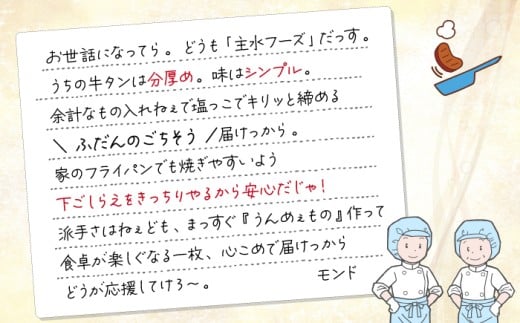 お世話になってら。どうも「主水フーズ」だっす。
うちの牛タンは分厚め。味はシンプル。
余計なもの入れねぇで塩っこでキリッと締める
＼ ふだんのごちそう ／届けっから。
家のフライパンでも焼ぎやすいよう
下ごしらえをきっちりやるから安心だじゃ!
派手さはねぇども、まっすぐ『うんめぇもの』作って
食卓が楽しぐなる一枚、心こめで届けっから
どうが応援してけろ～。
モンド